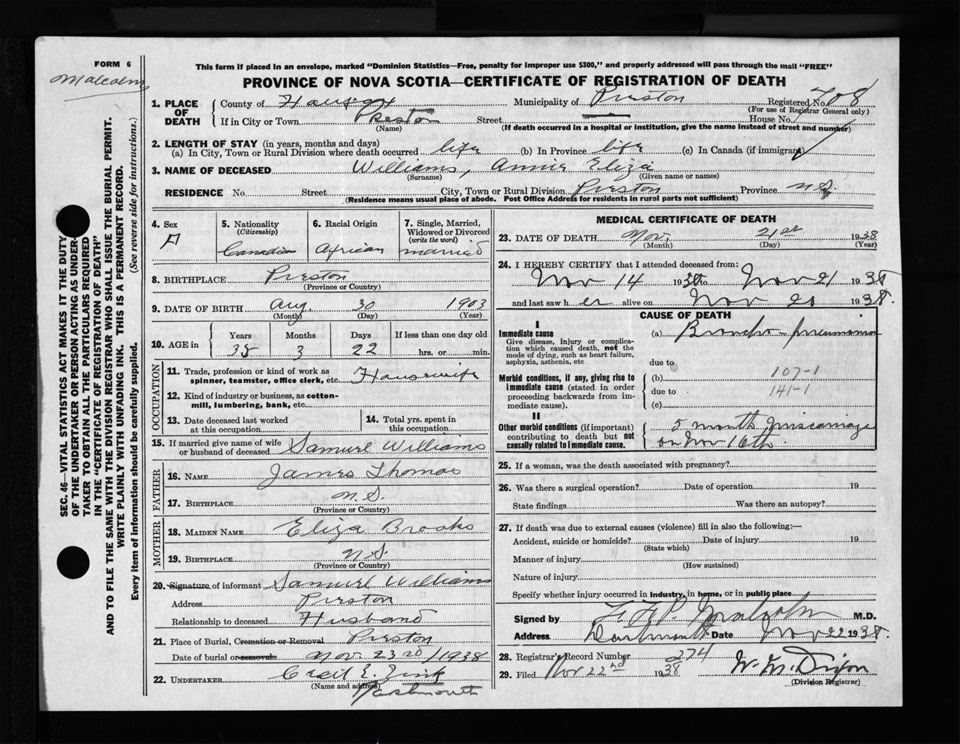 FORM 6
Malcolm
This form if placed in an envelope, marked "Dominion Statistics—Free, penalty for improper use $300," and properly addressed will pass through the mail "FREE"
PROVINCE OF NOVA SCOTIA—CERTIFICATE OF REGISTRATION OF DEATH
SEC. 46—VITAL STATISTICS ACT MAKES IT THE DUTY
OF THE UNDERTAKER OR PERSON ACTING AS UNDER-
TAKER TO OBTAIN ALL THE PARTICULARS REQUIRED
IN THE "CERTIFICATE OF REGISTRATION OF DEATH"
AND TO FILE THE SAME WITH THE DIVISION REGISTRAR WHO SHALL ISSUE THE BURIAL PERMIT.
WRITE PLAINLY WITH UNFADING INK. THIS IS A PERMANENT RECORD.
Every item of information should be carefully supplied. (See reverse side for instructions.)
1. PLACE OF DEATH County of Halifax Municipality of Preston Registered No. 708
(For use of Registrar General only)
If in City or Town Preston Street House No.
(Name) (If death occurred in a hospital or institution, give the name instead of street and number)
2. LENGTH OF STAY (in years, months and days)
(a) In City, Town or Rural Division where death occurred life (b) In Province life (c) In Canada (if immigrant)
3. NAME OF DECEASED Williams, Annie Eliza
(Surname) (Given name or names)
RESIDENCE No. Street City, Town or Rural Division Preston Province N.S.
(Residence means usual place of abode. Post Office Address for residents in rural parts not sufficient)
4. Sex F
5. Nationality (Citizenship) Canadian
6. Racial Origin African
7. Single, Married, Widowed or Divorced (write the word) married
8. BIRTHPLACE Preston
(Province or County)
9. DATE OF BIRTH Aug. 30 1903
(Month) (Day) (Year)
10. AGE in Years Months Days If less than one day old
35 3 22 hrs. or min.
OCCUPATION
11. Trade, profession or kind of work as spinner, teamster, office clerk, etc. Housewife
12. Kind of industry or business, as cotton-mill, lumbering, bank, etc.
13. Date deceased last worked at this occupation
14. Total yrs. spent in this occupation
15. If married give name of wife or husband of deceased Samuel Williams
FATHER
16. NAME James Thomas
17. BIRTHPLACE N.S.
(Province or Country)
MOTHER
18. MAIDEN NAME Eliza Brooks
19. BIRTHPLACE N S
(Province or Country)
20. Signature of informant Samuel Williams
Address Preston
Relationship to deceased Husband
21. Place of Burial, Cremation or Removal Preston
Date of burial or removal Nov. 23rd/1938
22. UNDERTAKER
(Name and address) Dartmouth
MEDICAL CERTIFICATE OF DEATH
23. DATE OF DEATH Nov. 21st 1938
(Month) (Day) (Year)
24. I HEREBY CERTIFY that I attended deceased from:
Nov 14 1938 to Nov 21 1938
and last saw her alive on Nov 20 1938.
CAUSE OF DEATH
I
Immediate cause
Give disease, injury or complication which caused death, not the mode of dying, such as heart failure, asphyxia, asthenia, etc
(a) Broncho-pneumonia
due to
Morbid conditions, if any, giving rise to immediate cause (stated in order proceeding backwards from immediate cause)
(b) 107-1
due to 141-1
(c)
II
Other morbid conditions (if important) contributing to death but not causally related to immediate cause.
5 month miscarriage
on Nov 16th.
25. If a woman, was the death associated with pregnancy?
26. Was there a surgical operation? Date of operation 19
State findings Was there an autopsy?
27. If death was due to external causes (violence) fill in also the following:—
Accident, suicide or homicide? Date of injury 19
(State which)
Manner of injury
(How sustained)
Nature of injury
Specify whether injury occurred in industry, in home, or in public place
Signed by Malcolm M.D.
Address Dartmouth Date Nov 22 1938.
28. Registrar's Record Number 274
29. Filed Nov 22nd 1938 W. M. Dixon
(Division Registrar)